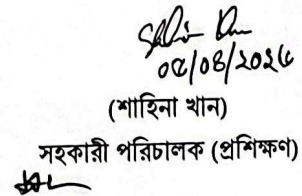 ০৫/০৪/২০২৬
(শাহিনা খান)
সহকারী পরিচালক (প্রশিক্ষণ)